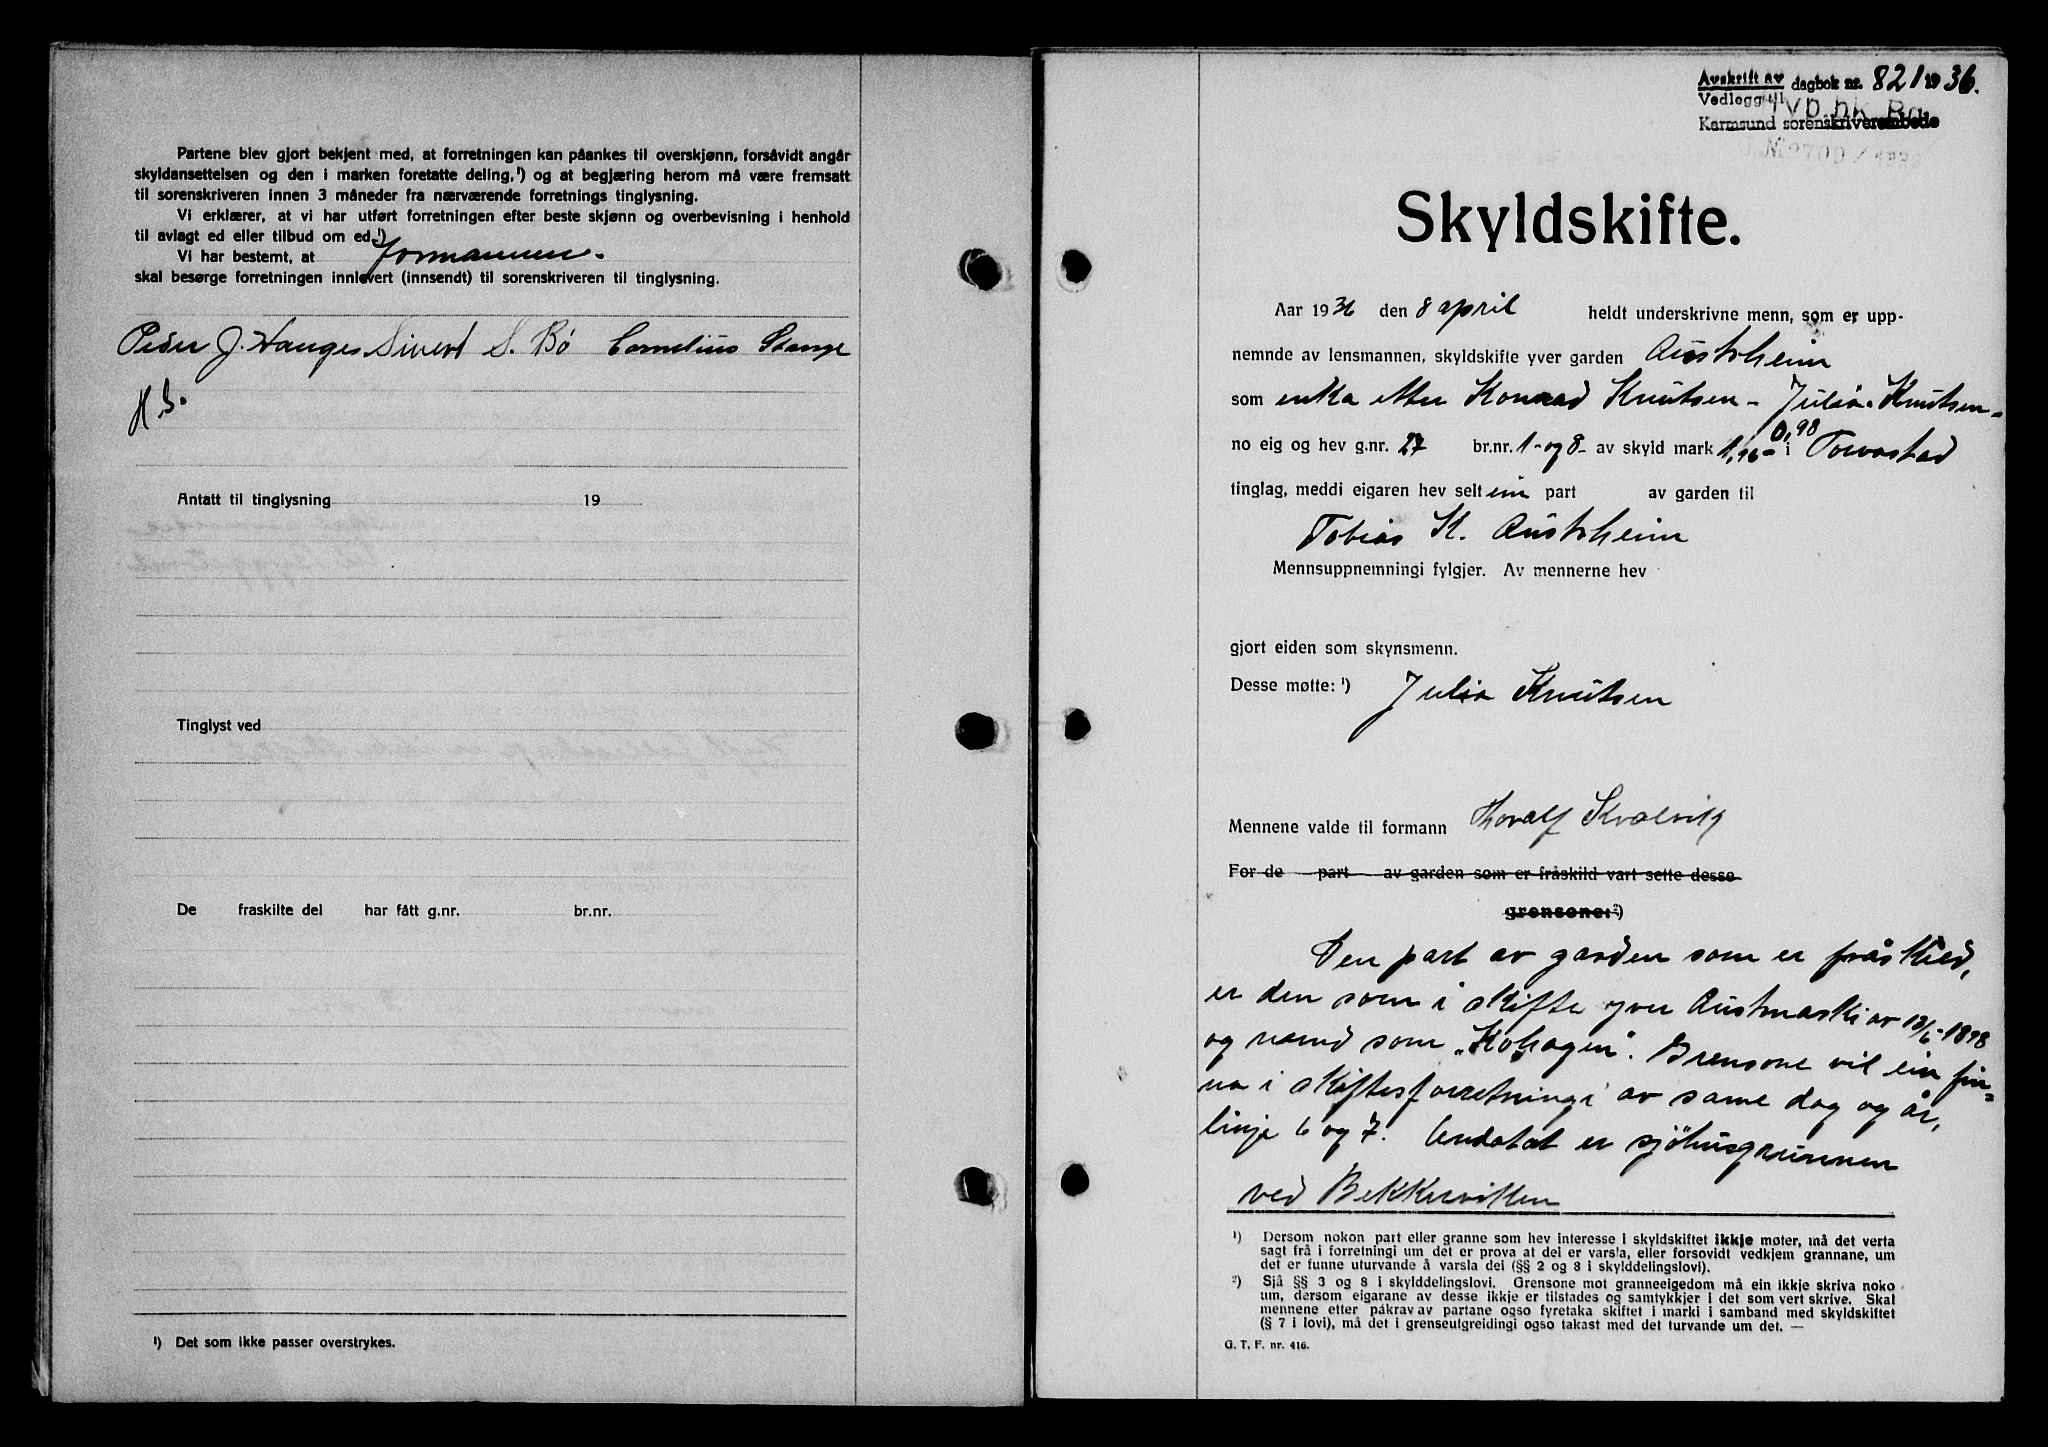 Partene blev gjort bekjent med, at forretningen kan påankes til overskjønn, forsåvidt angår
skyldansettelsen og den i marken foretatte deling,¹) og at begjæring herom må være fremsatt
til sorenskriveren innen 3 måneder fra nærværende forretnings tinglysning.
Vi erklærer, at vi har utført forretningen efter beste skjønn og overbevisning i henhold
til avlagt ed eller tilbud om ed.¹)
Vi har bestemt, at formannen.
skal besørge forretningen innlevert (innsendt) til sorenskriveren til tinglysning.
Peder J. Hauges Sivert S. Bö Cornelius Stange
Antatt til tinglysning 19
Tinglyst ved
De fraskilte del har fått g.nr. br.nr.
¹) Det som ikke passer overstrykes.
Avskrift av dagbok nr. 821 1936.
Vedlegg til
Karmsund sorenskriverembede
Skyldskifte.
Aar 1936 den 8 april heldt underskrivne menn, som er upp-
nemnde av lensmannen, skyldskifte yver garden Austrheim
som enka etter Konrad Knutsen - Julia Knutsen -
no eig og hev g.nr. 27 br.nr. 1- og 8- av skyld mark 1,16- 0,98 i Torvastad
tinglag, meddi eigaren hev selt ein part av garden til
Tobias K. Austrheim
Mennsuppnemningi fylgjer. Av mennerne hev
gjort eiden som skynsmenn.
Desse møtte: ¹) Julia Knutsen
Mennene valde til formann Thoralf Kvalvik
For de part av garden som er fråskild vart sette desse
grensone: ²)
Den part av garden som er fråskild,
er den som i skifte yver Austmarki av 13/6-1898
og namd som "Kohagen". Grensone vil ein fin-
na i skiftesforretningi av same dag og år,
linje 6 og 7. Undatat er sjöhusgrunnen
ved Bekkervikken
¹) Dersom nokon part eller granne som hev interesse i skyldskiftet ikkje møter, må det verta
sagt frå i forretningi um det er prova at dei er varsla, eller forsovidt vedkjem grannane, um
det er funne uturvande å varsla dei (§§ 2 og 8 i skylddelingslovi).
²) Sjå §§ 3 og 8 i skylddelingslovi. Grensone mot granneeigedom må ein ikkje skriva noko
um, dersom eigarane av desse ikkje er tilstades og samtykkjer i det som vert skrive. Skal
mennene etter påkrav av partane ogso fyretaka skiftet i marki i samband med skyldskiftet
(§ 7 i lovi), må det i grenseutgreidingi ogso takast med det turvande um det. —
G. T. F. nr. 416.